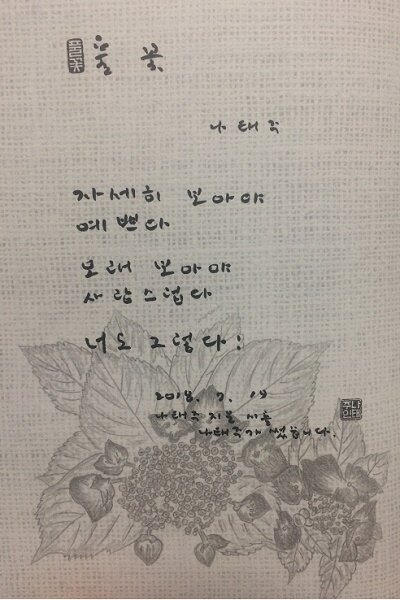 풀꽃
풀 꽃
나태주
자세히 보아야
예쁘다
오래 보아야
사랑스럽다
너도 그렇다!
2018. 7. 19
나태주 지은 시를
나태주가 썼습니다.